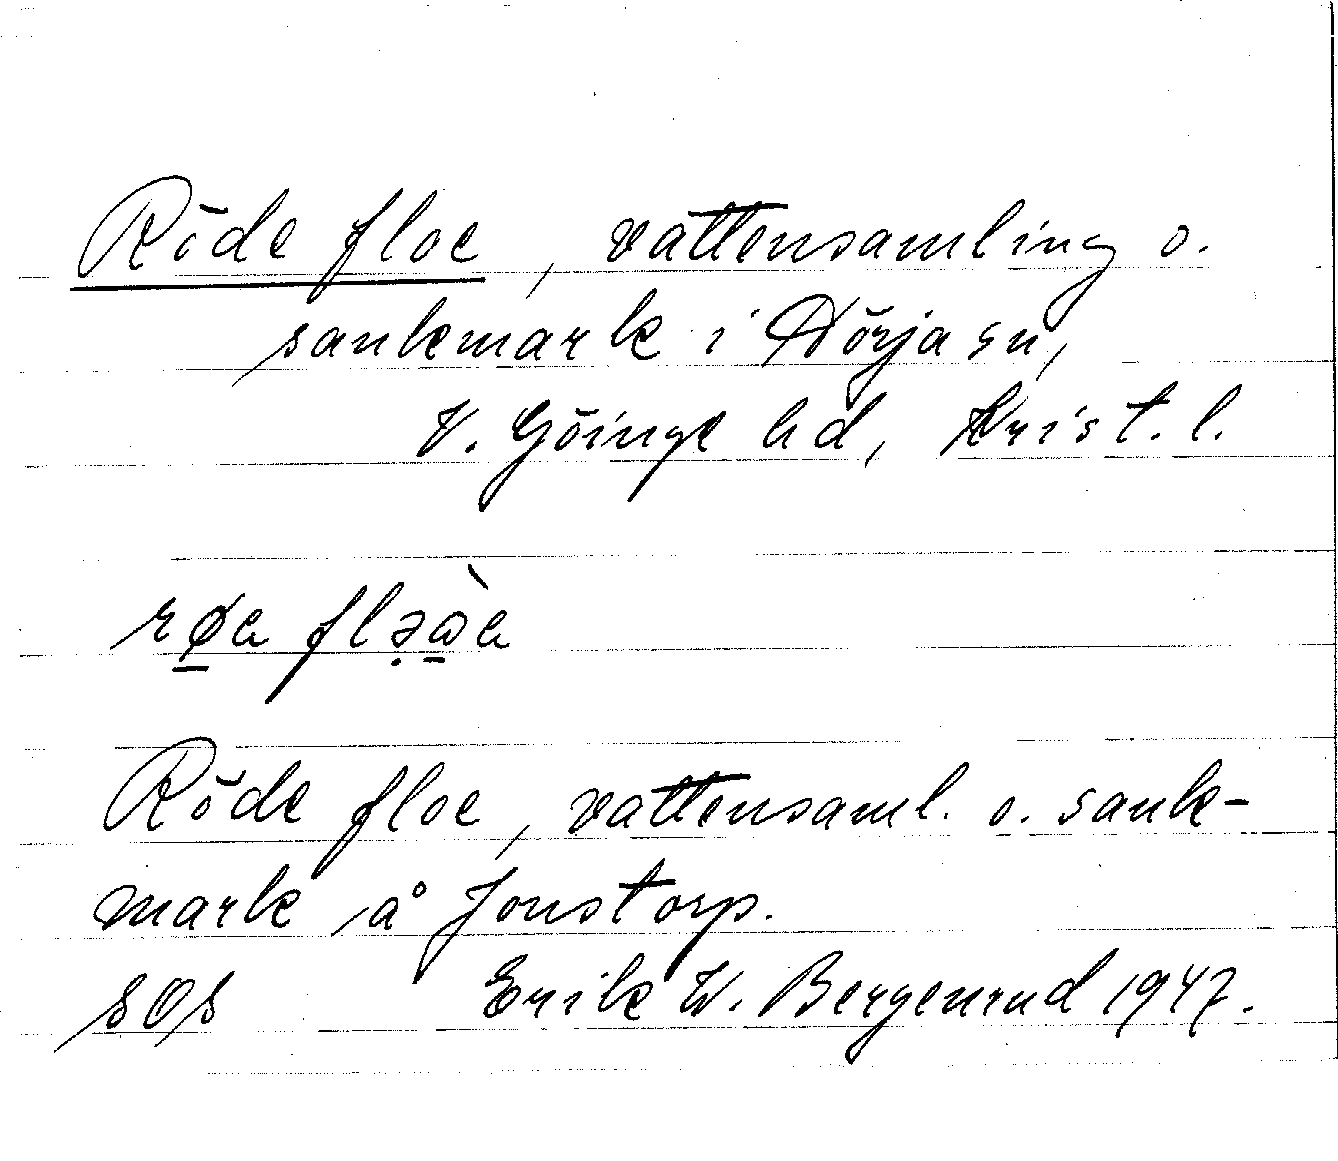 Röde floe, vattensamling o.
sankmark i Nörja sn,
V. Göinge hd, Krist. l.
Röde floe, vattensaml. o. sank-
mark å Jonstorp.
SOS Erik W. Bergenrud 1947.